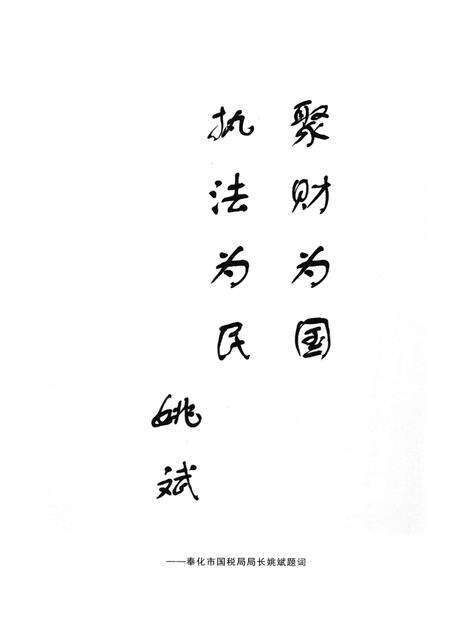 聚财为国
执法为民
姚斌
——奉化市国税局局长姚斌题词